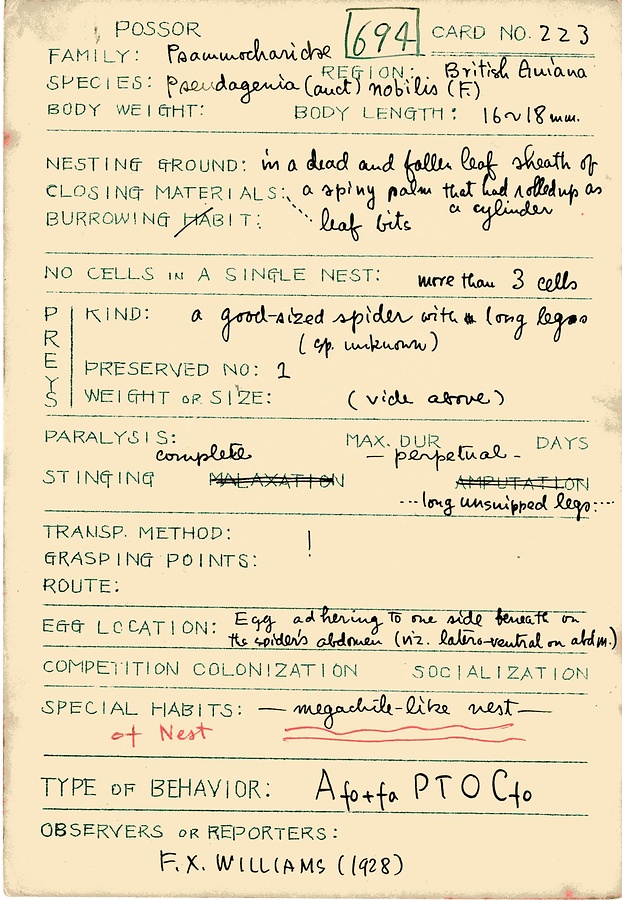 POSSOR 694 CARD NO. 223
FAMILY: Psammocharidae
REGION: British Guiana
SPECIES: Pseudagenia (auct) nobilis (F.)
BODY WEIGHT: BODY LENGTH: 16~18 mm.
NESTING GROUND: in a dead and fallen leaf sheath of
CLOSING MATERIALS: a spiny palm that had rolled up as
a cylinder
BURROWING HABIT: leaf bits
NO CELLS IN A SINGLE NEST: more than 3 cells
PREYS
KIND: a good-sized spider with long legs
(sp. unknown)
PRESERVED NO: 1
WEIGHT OR SIZE: (vide above)
PARALYSIS: complete MAX. DUR — perpetual - DAYS
STINGING MALAXATION AMPUTATION
---long unsnipped legs---
TRANSP. METHOD: |
GRASPING POINTS:
ROUTE:
EGG LOCATION: Egg adhering to one side beneath on
the spider's abdomen (viz. latero-ventral on abdm.)
COMPETITION COLONIZATION SOCIALIZATION
SPECIAL HABITS: — megachile-like nest —
of Nest
TYPE OF BEHAVIOR: Afo+fa PTOCfo
OBSERVERS OR REPORTERS:
F.X. WILLIAMS (1928)